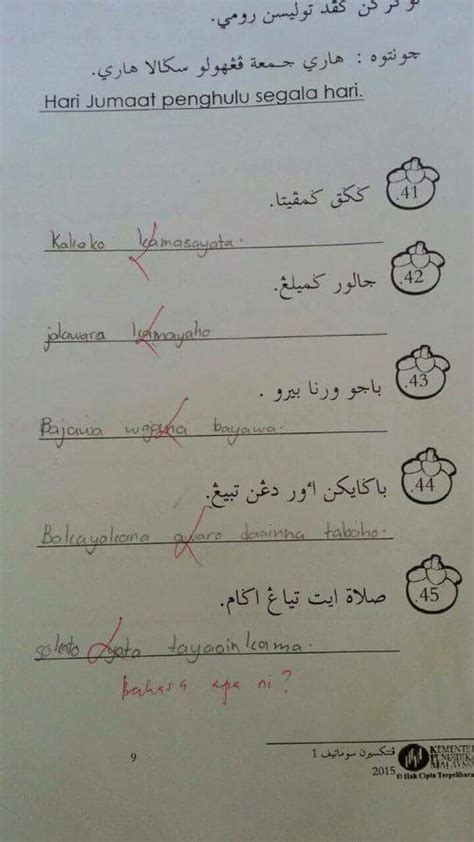 توکرکن کڤد توليسن رومي.
چونتوه : هاري جمعة ڤڠهولو سݢالا هاري.
Hari Jumaat penghulu segala hari.
41. کݢق کمڤيتا.
Kakako kamasayata.
42. جالور ݢميلڠ.
jalawara kamayaho
43. باجو ورنا بيرو .
Bajawa wgana bayawa.
44. باݢايکن اءور دڠن تبيڠ.
Bakayakana awaro daainna tabaiho.
45. صلاة ايت تياڠ اݢام.
solato yata tayaginkama.
Bahasa apa ni?
9
ڤنتکسيرن سوماتيف 1
2015
KEMENTE
PENDIDIK
MALAYSI
© Hak Cipta Terpelihara